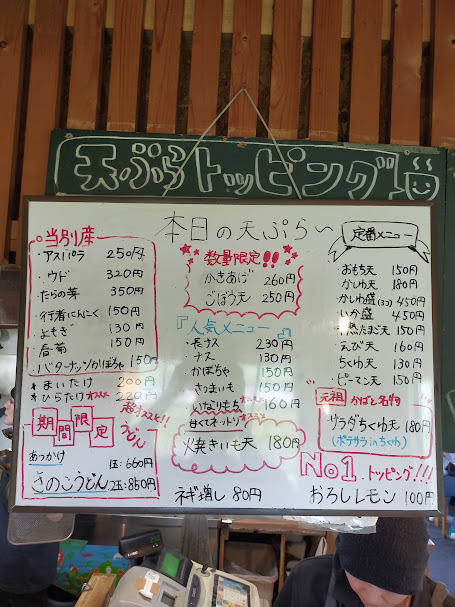 天ぷらトッピング
本日の天ぷら〜
当別産
・アスパラ 250円
・ウド 320円
・たらの芽 350円
・行者にんにく 150円
・よもぎ 130円
・春菊 150円
・バターナッツかぼちゃ 150円
*まいたけ 200円
*ひらたけ オススメ 220円
超オススメ!!
期間限定
うどん
あっかけ
きのこうどん
1玉:660円
2玉:850円
数量限定!!
かきあげ 260円
ごぼう天 250円
『人気メニュー』
・長ナス 230円
・ナス 130円
・かぼちゃ 150円
・さつまいも 150円
・いなりもち オススメ 160円
甘くてネットリ
・火焼きいも天 180円
ネギ増し 80円
定番メニュー
・おもち天 150円
・かしわ天 180円
・かしわ盛(3コ) 450円
・いか盛 450円
・えび天 160円
・ちくわ天 130円
・ピーマン天 150円
元祖 かばと名物
・サラダちくわ天 180円
(ポテサラinちくわ)
No1 トッピング!!!
おろしレモン 100円